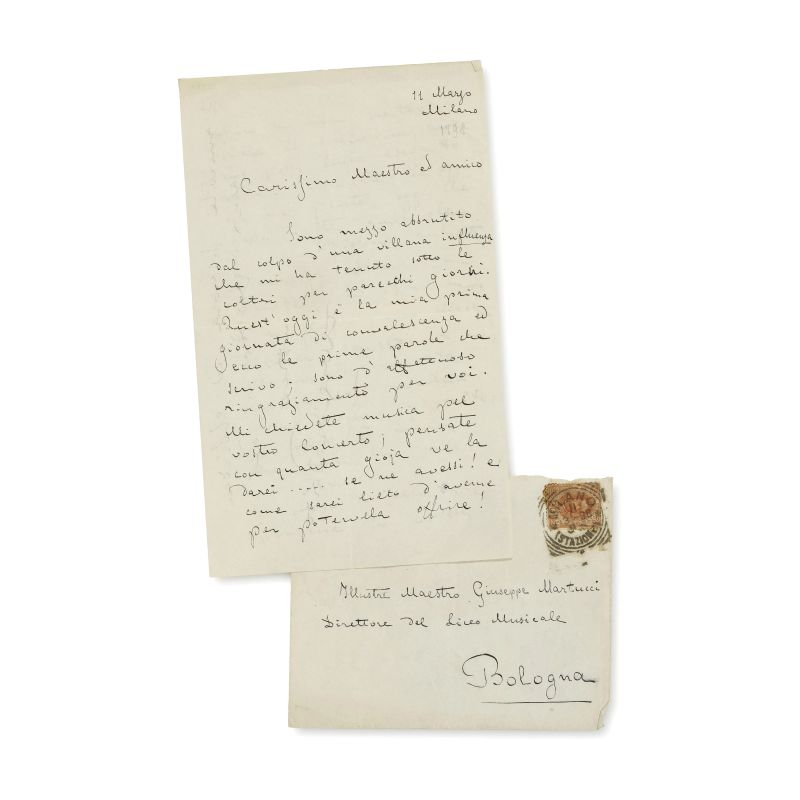 11 Marzo
Milano
189
Carissimo Maestro ed amico
Sono mezzo abbrutito
dal colpo d'una villana influenza
che mi ha tenuto sotto le
coltri per parecchi giorni.
Quest'oggi è la mia prima
giornata di convalescenza ed
ecco le prime parole che
scrivo; sono d'affettuoso
ringraziamento per voi.
Mi chiedete musica pel
vostro Concerto; pensate
con quanta gioja ve la
darei ..... se ne avessi! e
come sarei lieto d'averne
per potervela offrire!
MILANO
(STAZIONE)
Illustre Maestro Giuseppe Martucci
Direttore del Liceo Musicale
Bologna